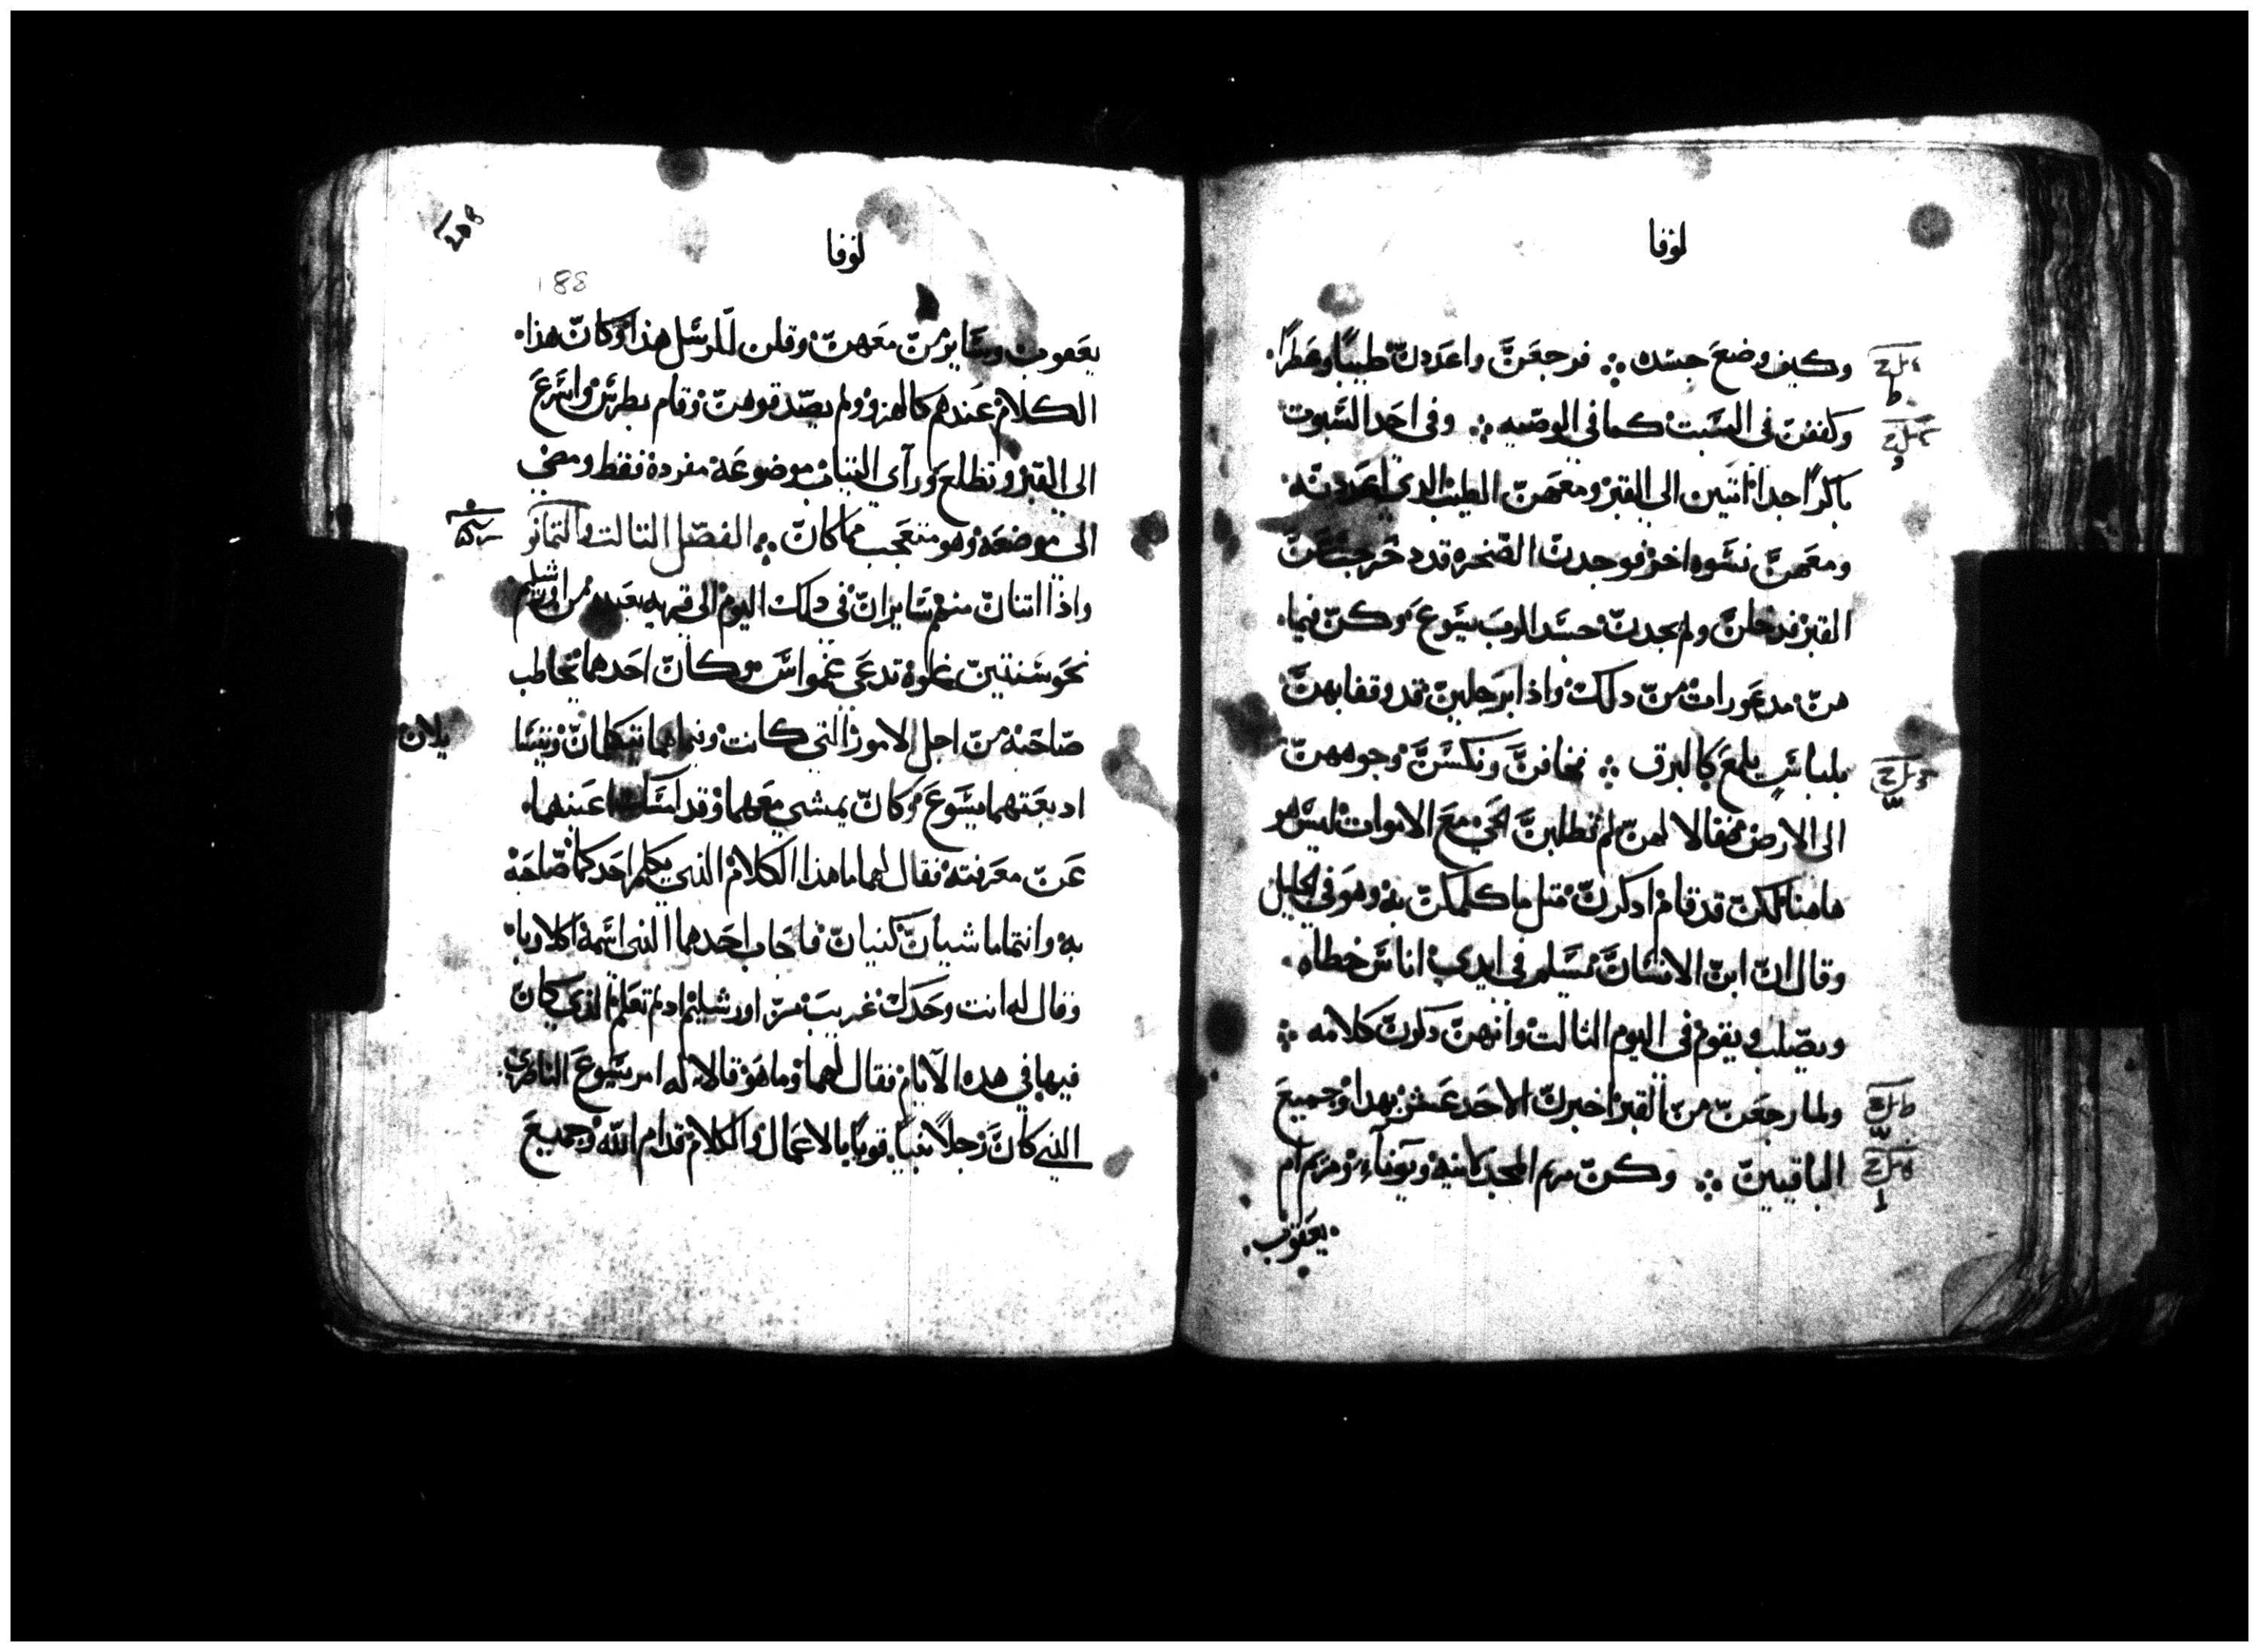 لوقا
وكيف وضع جسده ∴ فرجعن واعددن طيبًا وعطرًا
وكففن في السبت كما في الوصيه ∴ وفي احد السبوت
باكرًا جدا اتين الى القبر ومعهن الطيب الدي اعددنه
ومعهن نسوه اخر فوجدن الصخره قد دحرجت عن
القبر فدخلن ولم يجدن جسد الرب يسوع وكن فيما
هن مدعورات من دلك واذا برجلين قد وقفا بهن
بلباس يلمع كالبرق ∴ فخافن ونكسن وجوههن
الى الارض فقالا لهن لم تطلبن الحي مع الاموات ليس هو
هاهنا لكن قد قام ادكرن متل ما كلمكن به وهو في الجليل
وقال ان ابن الانسان مسلم في ايدي اناس خطاه
ويصلب ويقوم في اليوم الثالت وانهن دكرن كلامه ∴
ولما رجعن من القبر اخبرن الاحد عشر بهدا وجميع
الباقيين ∴ وكن مريم المجدلانيه ويونا ومريم ام
يعقوب
لوقا
188
يعقوب وساير من معهن وقلن للرسل هذا وكان هذا
الكلام عندهم كالهزو ولم يصدقوهن وقام بطرس واسرع
الى القبر وتطلع ورآى التياب موضوعه مفردة فقط ومضى
الى موضعه وهو متعجب مما كان ∴ الفصل التالت والتمانو
واذا اتنان منهم سايران في دلك اليوم الى قريه بعيده من اورشليم
نحو ستين غلوة تدعى عمواس وكان احدهما يخاطب
صاحبه من اجل الامور التي كانت وفيما هما يتكلمان ويتسا
يلان
اد بعتهما يسوع وكان يمشي معهما وقد امسكت اعينهما
عن معرفته فقال لهما ما هذا الكلام الذي يكلم احدكما صاحبه
به وانتما ماشيان كئيبان فاجاب احدهما الذي اسمه اكلاوبا
وقال له انت وحدك غريب من اورشليم اد لم تعلم الذي كان
فيها في هده الآيام فقال لهما وما هو قالا له امر يسوع الناصري
الذي كان رجلًا نبيًا قويًا بالاعمال والكلام قدام الله وجميع